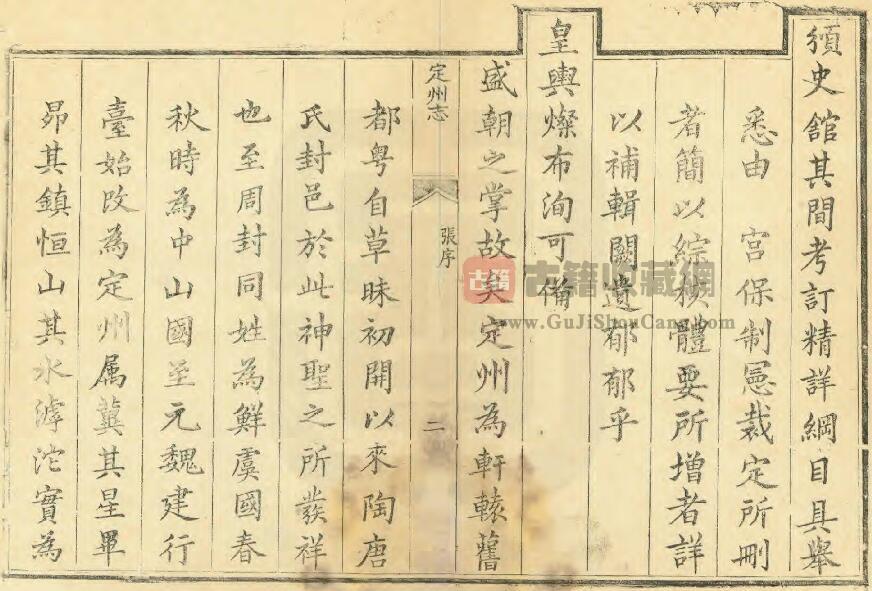 頒史館其間考訂精詳綱目具舉
悉由 宮保制憲裁定所刪
者簡以綜核體要所增者詳
以補輯闕遺郁郁乎
皇輿燦布洵可備
盛朝之掌故矣定州為軒轅舊
定州志
張序
二
都粤自草昧初開以來陶唐
氏封邑於此神聖之所發祥
也至周封同姓為鮮虞國春
秋時為中山國至元魏建行
臺始改為定州属冀其星畢
昴其鎮恒山其水滹沱實為
古籍 古籍收藏網
www.GuJiShouCang.com